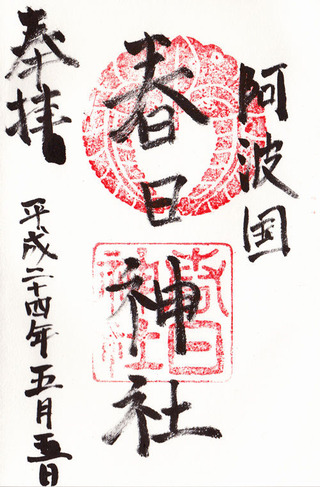 阿波国
春日神社
奉拝
平成二十四年五月五日
春日
神社